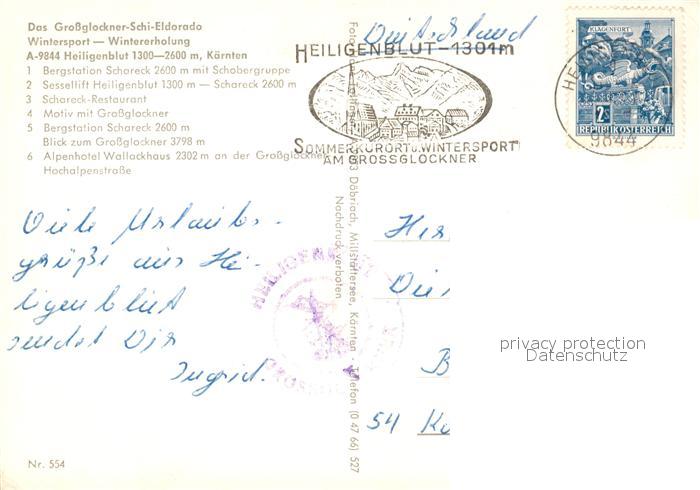 Das Großglockner-Schi-Eldorado
Wintersport — Wintererholung
A-9844 Heiligenblut 1300—2600 m, Kärnten
1 Bergstation Schareck 2600 m mit Schobergruppe
2 Sessellift Heiligenblut 1300 m — Schareck 2600 m
3 Schareck-Restaurant
4 Motiv mit Großglockner
5 Bergstation Schareck 2600 m
Blick zum Großglockner 3798 m
6 Alpenhotel Wallackhaus 2302 m an der Großglockner
Hochalpenstraße
Viele Urlaubs-
grüße aus Hei-
ligenblut
sendet Dir
Ingrid.
Nr. 554
Döbriach, Millstättersee, Kärnten · Telefon (0 47 66) 527
Nachdruck verboten
Deutschland
HEILIGENBLUT - 1301m
SOMMERKURORT U. WINTERSPORT
AM GROSSGLOCKNER
KLAGENFURT
2S
REPUBLIK ÖSTERREICH
9844
HEILIGENBLUT
Her
Die
B
54 Ko
privacy protection
Datenschutz